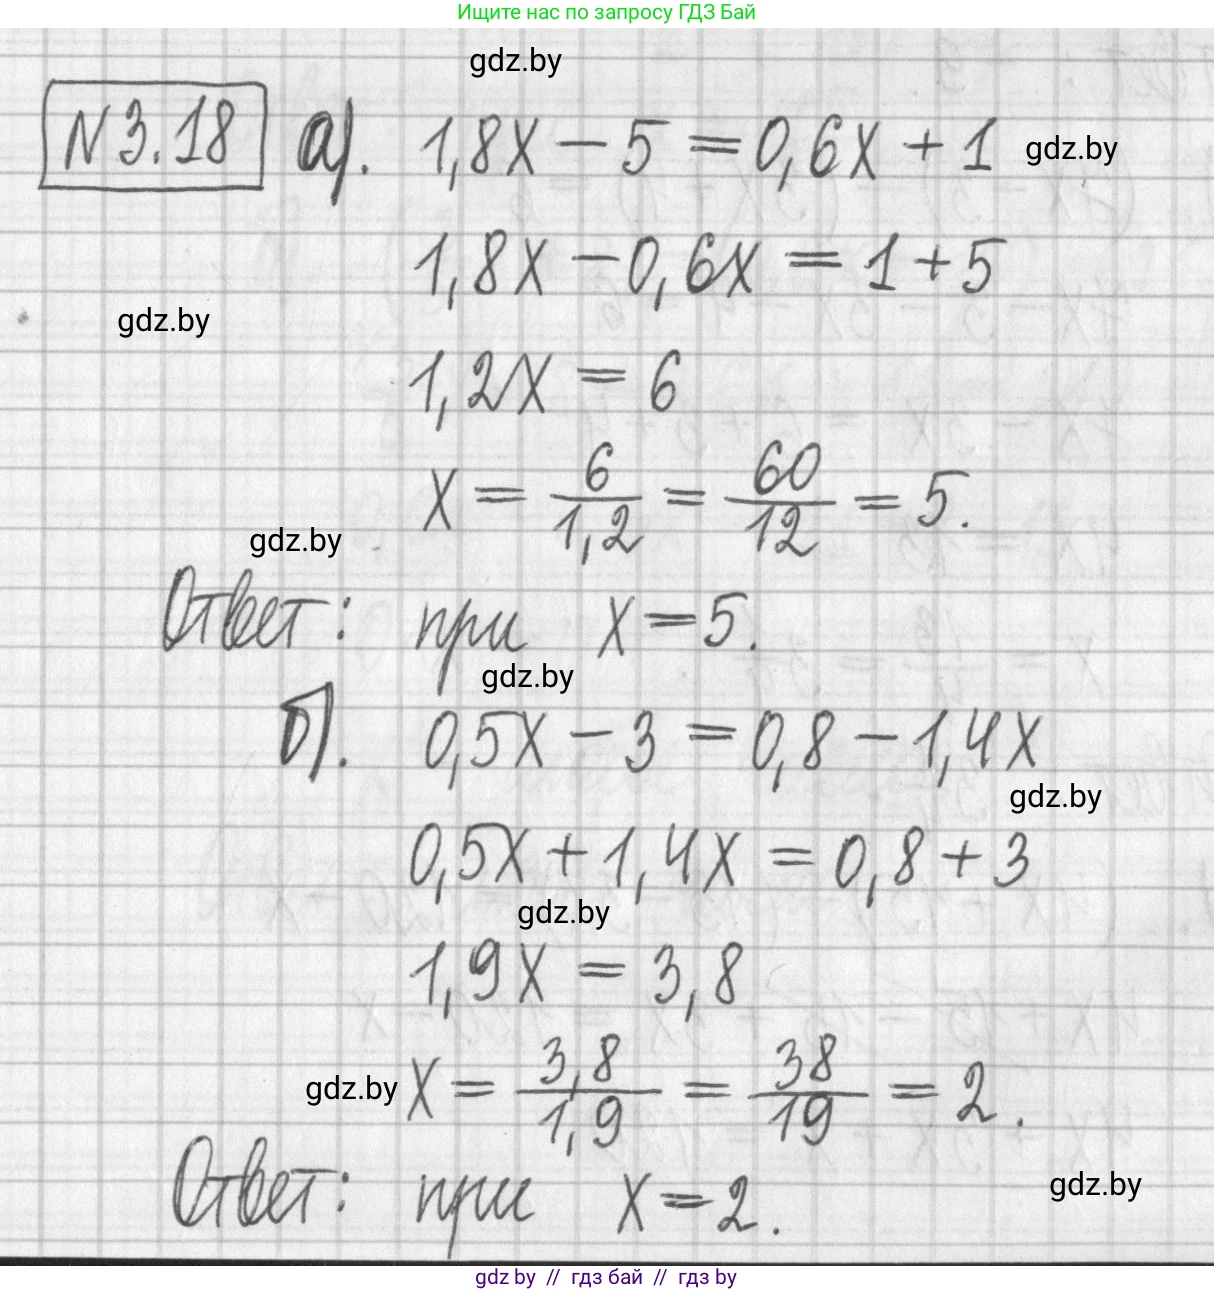 Ищите нас по запросу ГДЗ Бай
gdz.by
N 3.18 а). 1,8x − 5 = 0,6x + 1
gdz.by
1,8x − 0,6x = 1 + 5
gdz.by
1,2x = 6
x = 6/1,2 = 60/12 = 5.
gdz.by
Ответ: при x = 5.
gdz.by
б). 0,5x − 3 = 0,8 − 1,4x
gdz.by
0,5x + 1,4x = 0,8 + 3
gdz.by
1,9x = 3,8
gdz.by
x = 3,8/1,9 = 38/19 = 2.
Ответ: при x = 2.
gdz.by
gdz by // гдз бай // гдз by